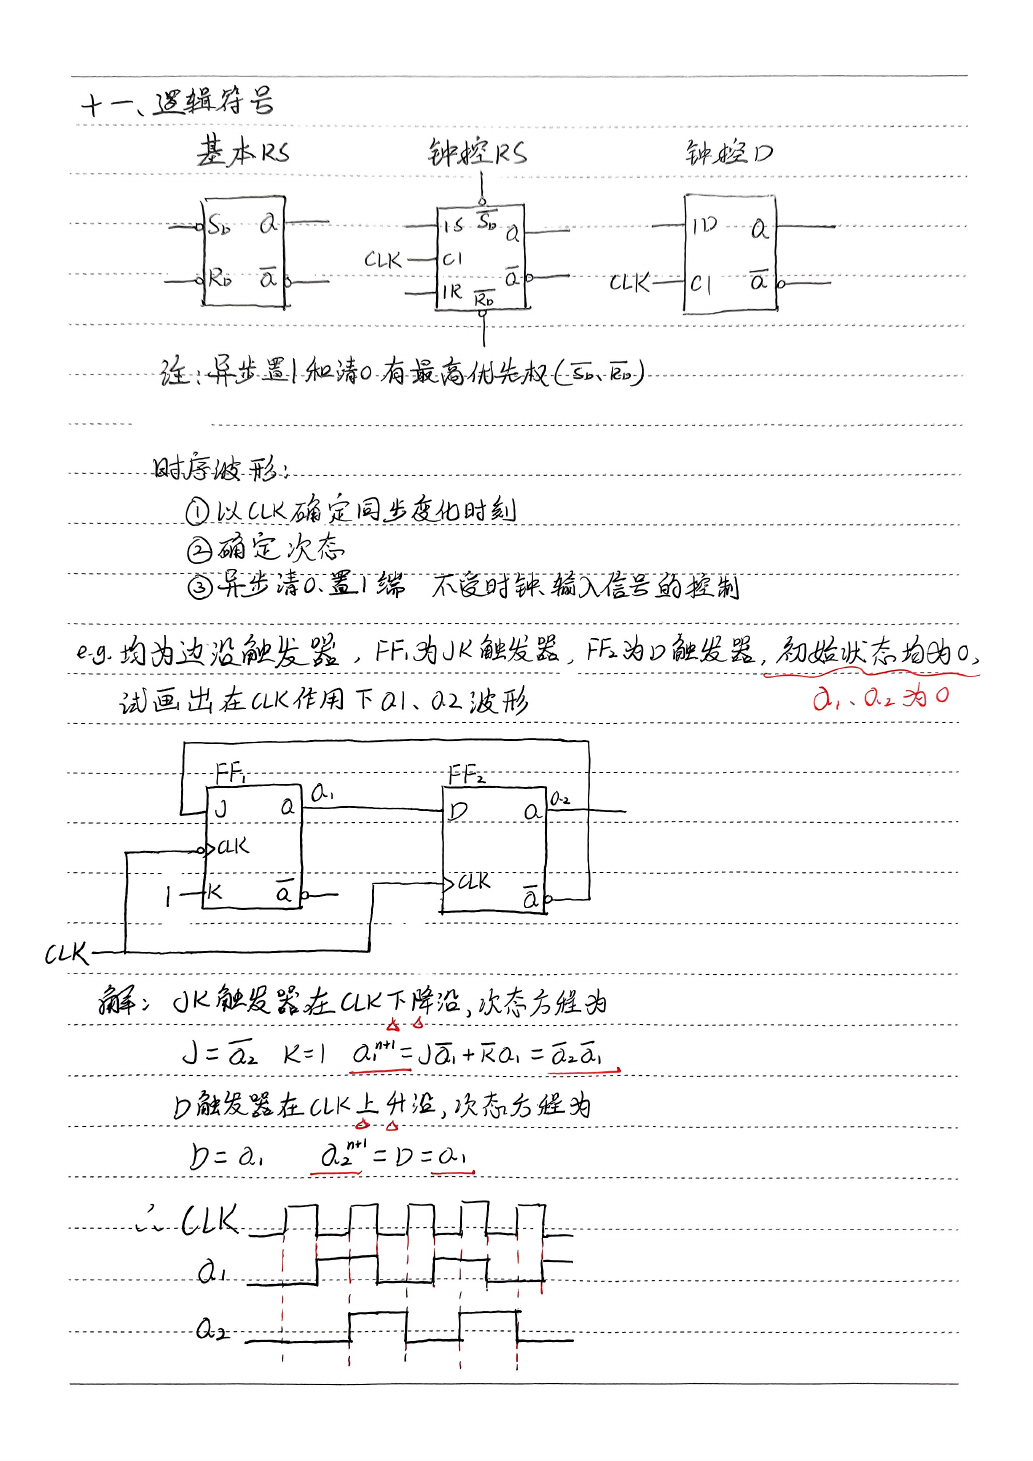 十一、逻辑符号
基本RS 钟控RS 钟控D
S_D Q 1S \overline{S_D} Q 1D Q
CLK C1 CLK C1 \overline{Q}
R_D \overline{Q} 1R \overline{R_D} \overline{Q}
注:异步置1和清0有最高优先权(\overline{S_D}、\overline{R_D})
时序波形:
①以CLK确定同步变化时刻
②确定次态
③异步清0、置1端 不受时钟、输入信号的控制
e.g. 均为边沿触发器,FF₁为JK触发器,FF₂为D触发器,初始状态均为0,
试画出在CLK作用下Q1、Q2波形 Q₁、Q₂为0
FF₁ Q₁ FF₂ Q₂
J Q D Q
CLK
1 K \overline{Q} CLK \overline{Q}
CLK
解:JK触发器在CLK下降沿,次态方程为
J=\overline{Q₂} K=1 Q₁ⁿ⁺¹=J\overline{Q₁}+\overline{K}Q₁=\overline{Q₂}\overline{Q₁}
D触发器在CLK上升沿,次态方程为
D=Q₁ Q₂ⁿ⁺¹=D=Q₁
∴ CLK
Q₁
Q₂